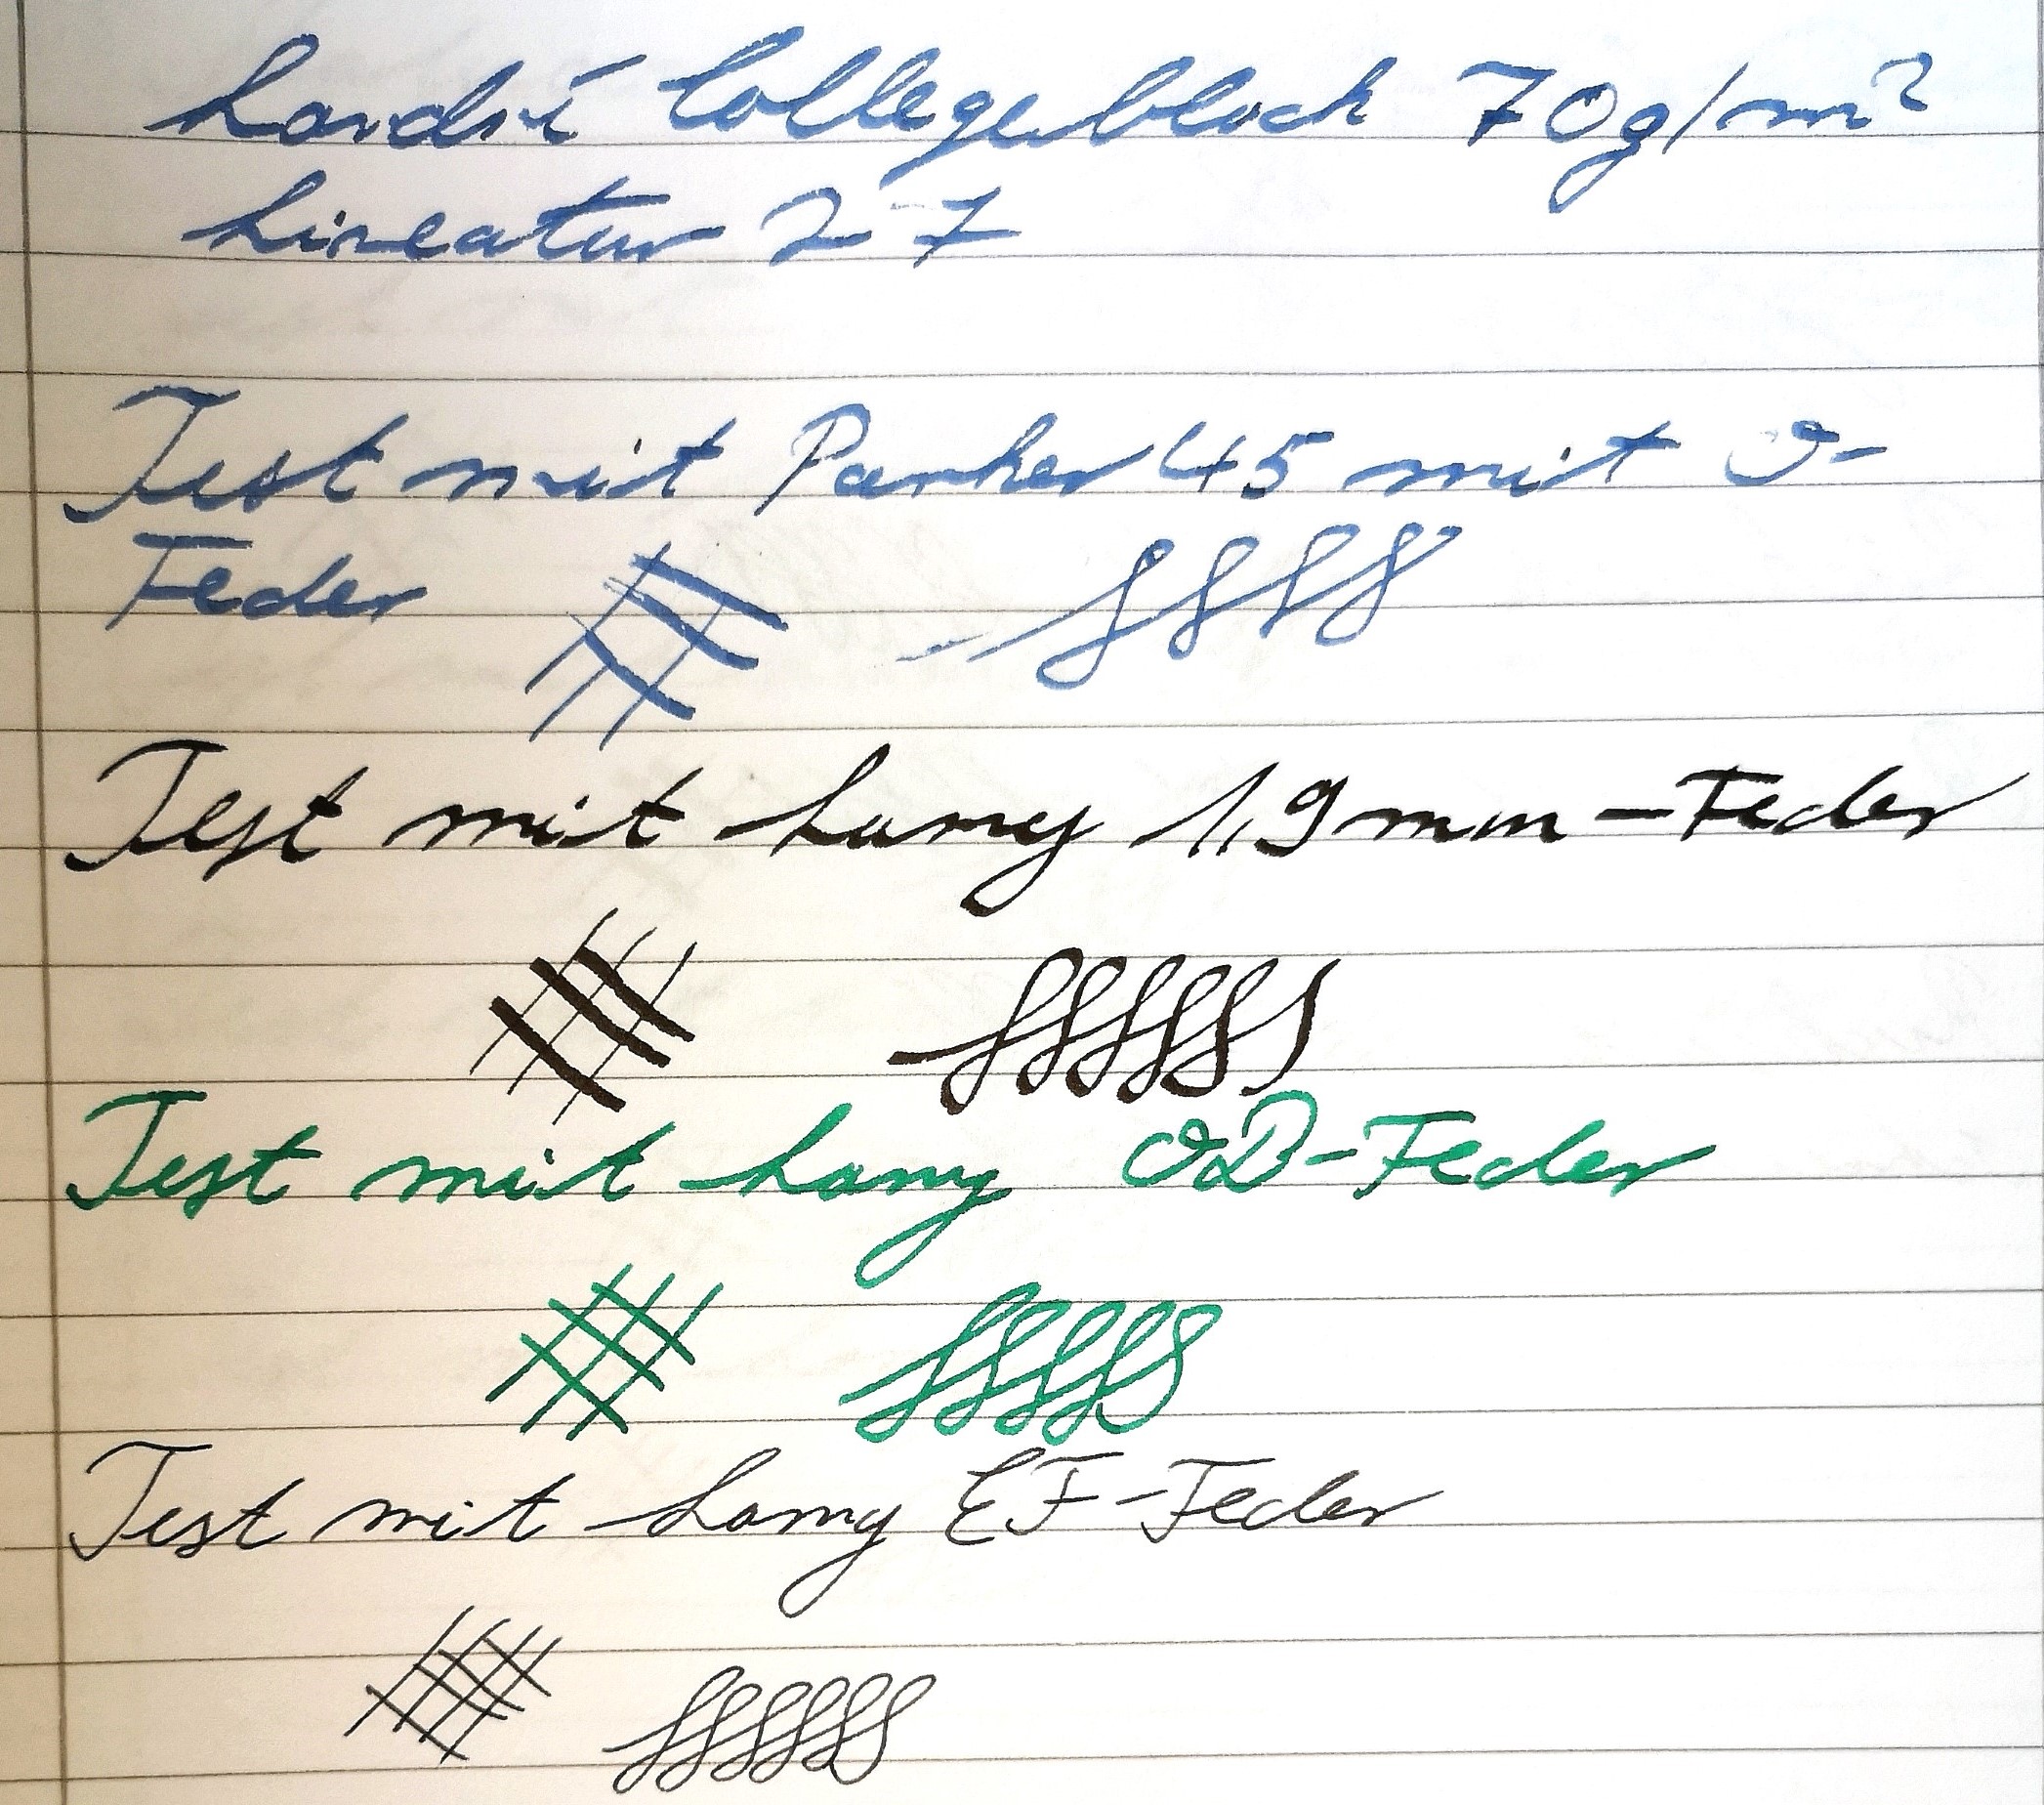 Landré Collegeblock 70g/m²
Lineatur 27
Test mit Parker 45 mit O-
Feder
Test mit Lamy 1,9mm-Feder
Test mit Lamy OB-Feder
Test mit Lamy EF-Feder